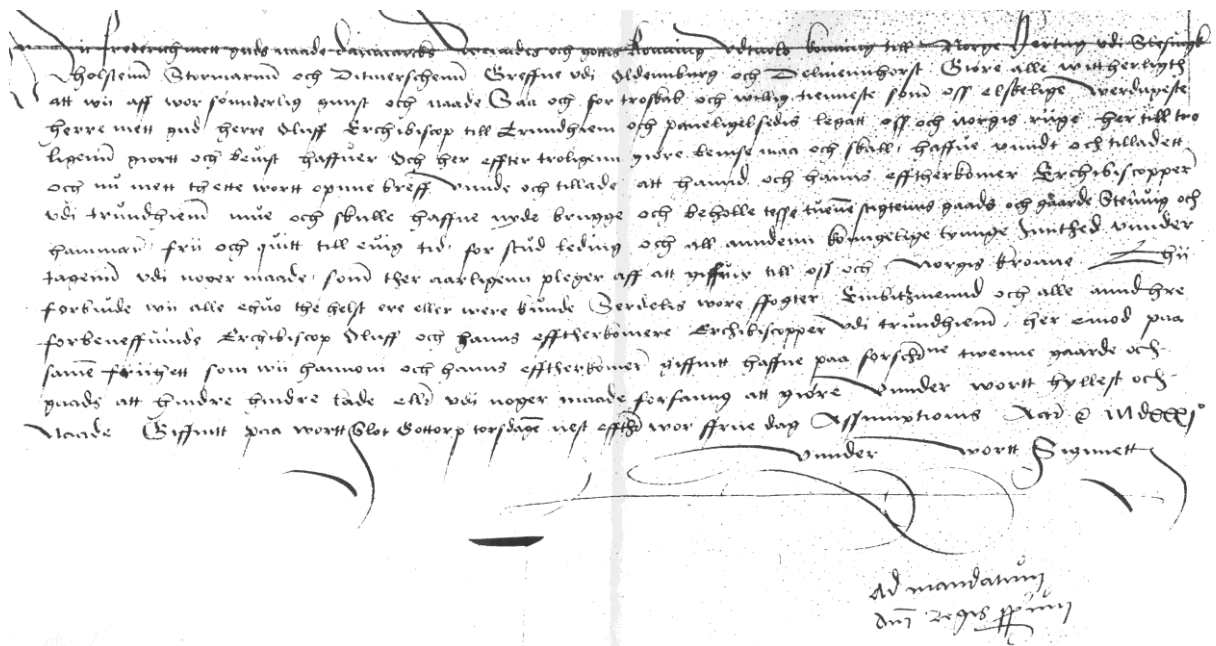 Wii frederich mett guds naade danmarcks Wendes och gottis konning vduald konning till Norge Hertug vdi Slesuigk
holstenn Stormarnn och Ditmerschenn Greffue vdi Oldemburg och Delmennhorst Giøre alle witherligth
att wii aff wor sønderlig gunst och naade Saa och for troskab och willig tienneste som oss elskelige werdugeste
herre mett gud herre Oluff Erchibiscop till Trundhiem och paueligesedis legatt oss och norgis riige her till tro
ligenn giortt och beuist haffuer Och her effter troligenn giøre beuise maa och skall haffue vundt och tilladett
och nu mett thette wortt opnne breff vnde och tillade att hannd och hanns efftherkomer Erchibiscopper
vdi trundhiem mue och skulle haffue nyde brugge och beholle tesse tuenne sigtenns gaads och gaarde Steuiug och
hammar frii och quitt till euig tid for stud leding och all anndenn konngelige tynnge Innthed vunder
tagenn vdi noger maade som ther aarligenn pleger aff att giffuis till oss och Norgis kronne Thii
forbiude wii alle ehuo the helst ere eller were kunde Serdelis wore ffogter Embitzmennd och alle anndhre
forbeneffuinde Erchibiscop Oluff och hanns efftherkomere Erchibiscopper vdi trundhiem her emod paa
samme friihett som wii hannom och hanns efftherkomer giffuitt haffue paa forschne twenne gaarde och
gaads att hindre hindre lade eller vdi noger maade forfanng att giøre vunder wortt hyllest och
Naade Giffuitt paa wortt Slot Gottorp torsdagen nest effther wor ffrue dag Assumptionis Aar &c MDxxxj
vunder wortt Signett
Ad mandatum
dni Regis pprium